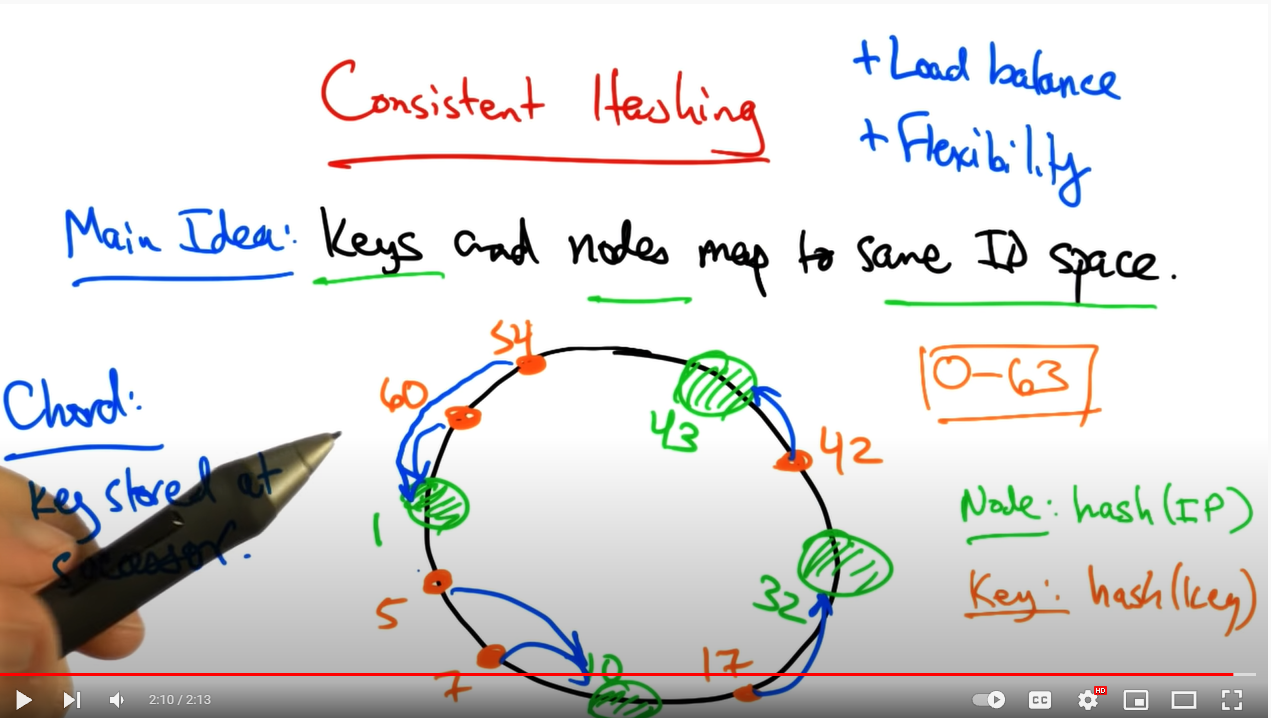 Consistent Hashing
+ Load balance
+ Flexibility
Main Idea: Keys and nodes map to same ID space.
54
60
43
42
0-63
Chord:
Key stored at
successor.
1
32
5
7
10
17
Node: hash(IP)
Key: hash(key)
2:10 / 2:13
CC
HD